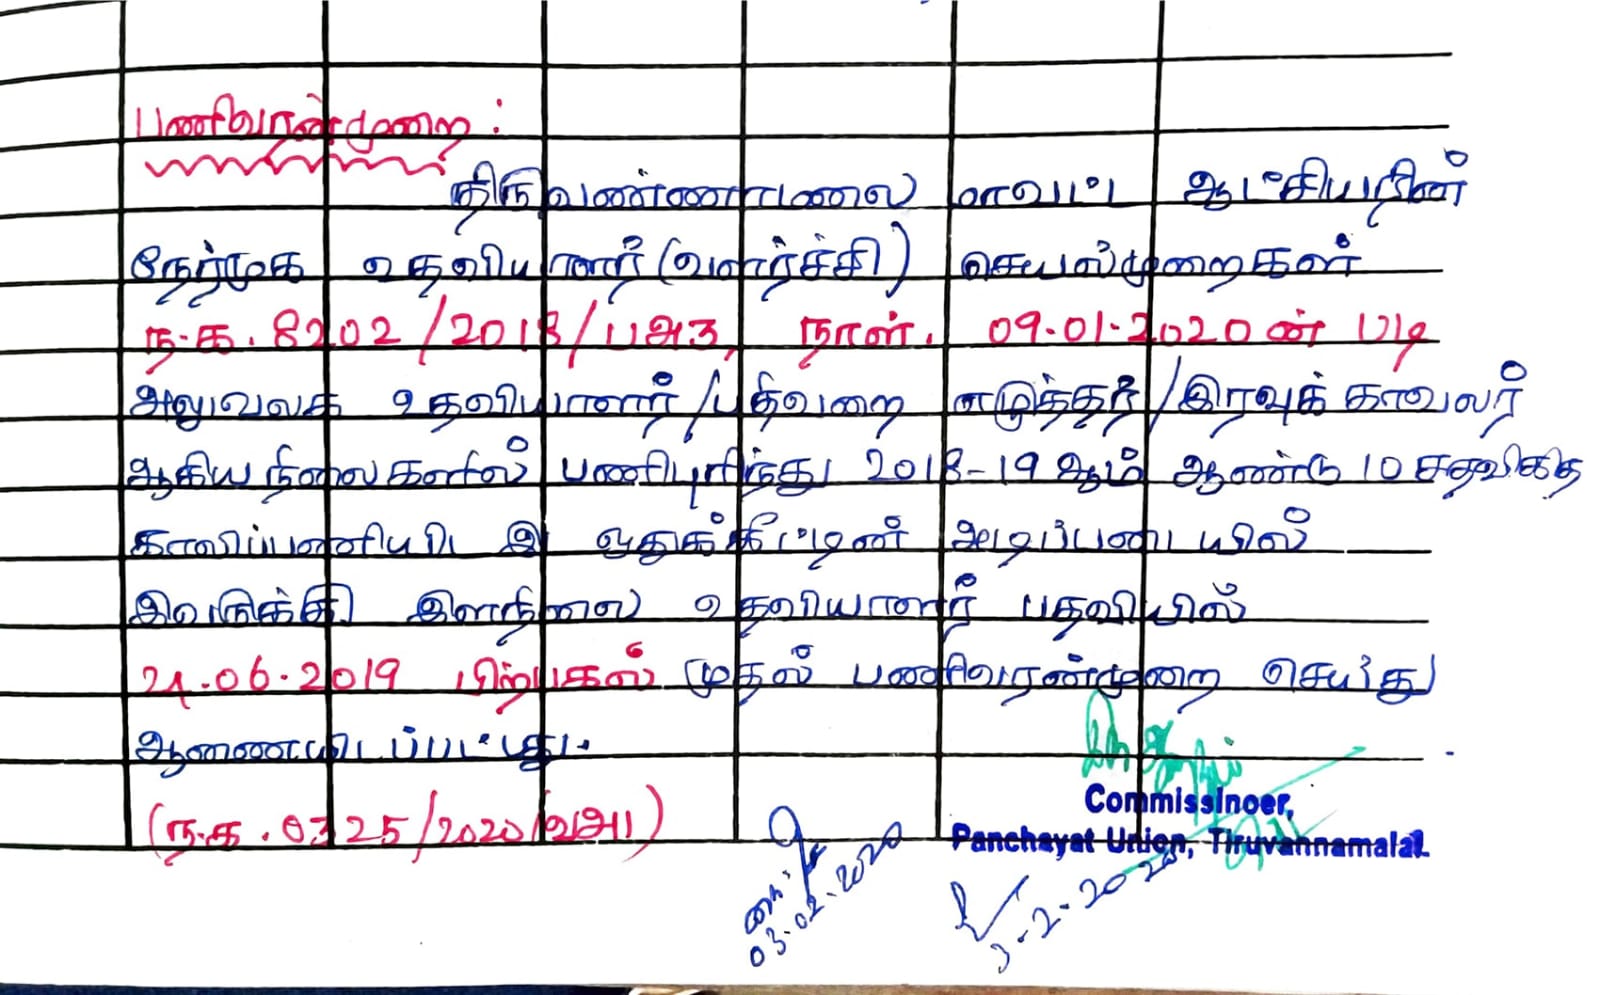 பணிவரன்முறை :
திருவண்ணாமலை மாவட்ட ஆட்சியரின்
நேர்முக உதவியாளர் (வளர்ச்சி) செயல்முறைகள்
ந.க. 8202/2018/பஅ3, நாள். 09.01.2020 ன் படி
அலுவலக உதவியாளர்/பதிவறை எழுத்தர்/இரவுக் காவலர்
ஆகிய நிலைகளில் பணிபுரிந்து 2018-19 ஆம் ஆண்டு 10 சதவிகித
காலிப்பணியிட இ ஒதுக்கீட்டின் அடிப்படையில்
இவருக்கு இளநிலை உதவியாளர் பதவியில்
21.06.2019 பிற்பகல் முதல் பணிவரன்முறை செய்து
ஆணையிடப்பட்டது.
(ந.க. 0325/2020/வஅ1)
Commissinoer,
Panchayat Union, Tiruvannamalai.
03.02.2020
3-2-2020